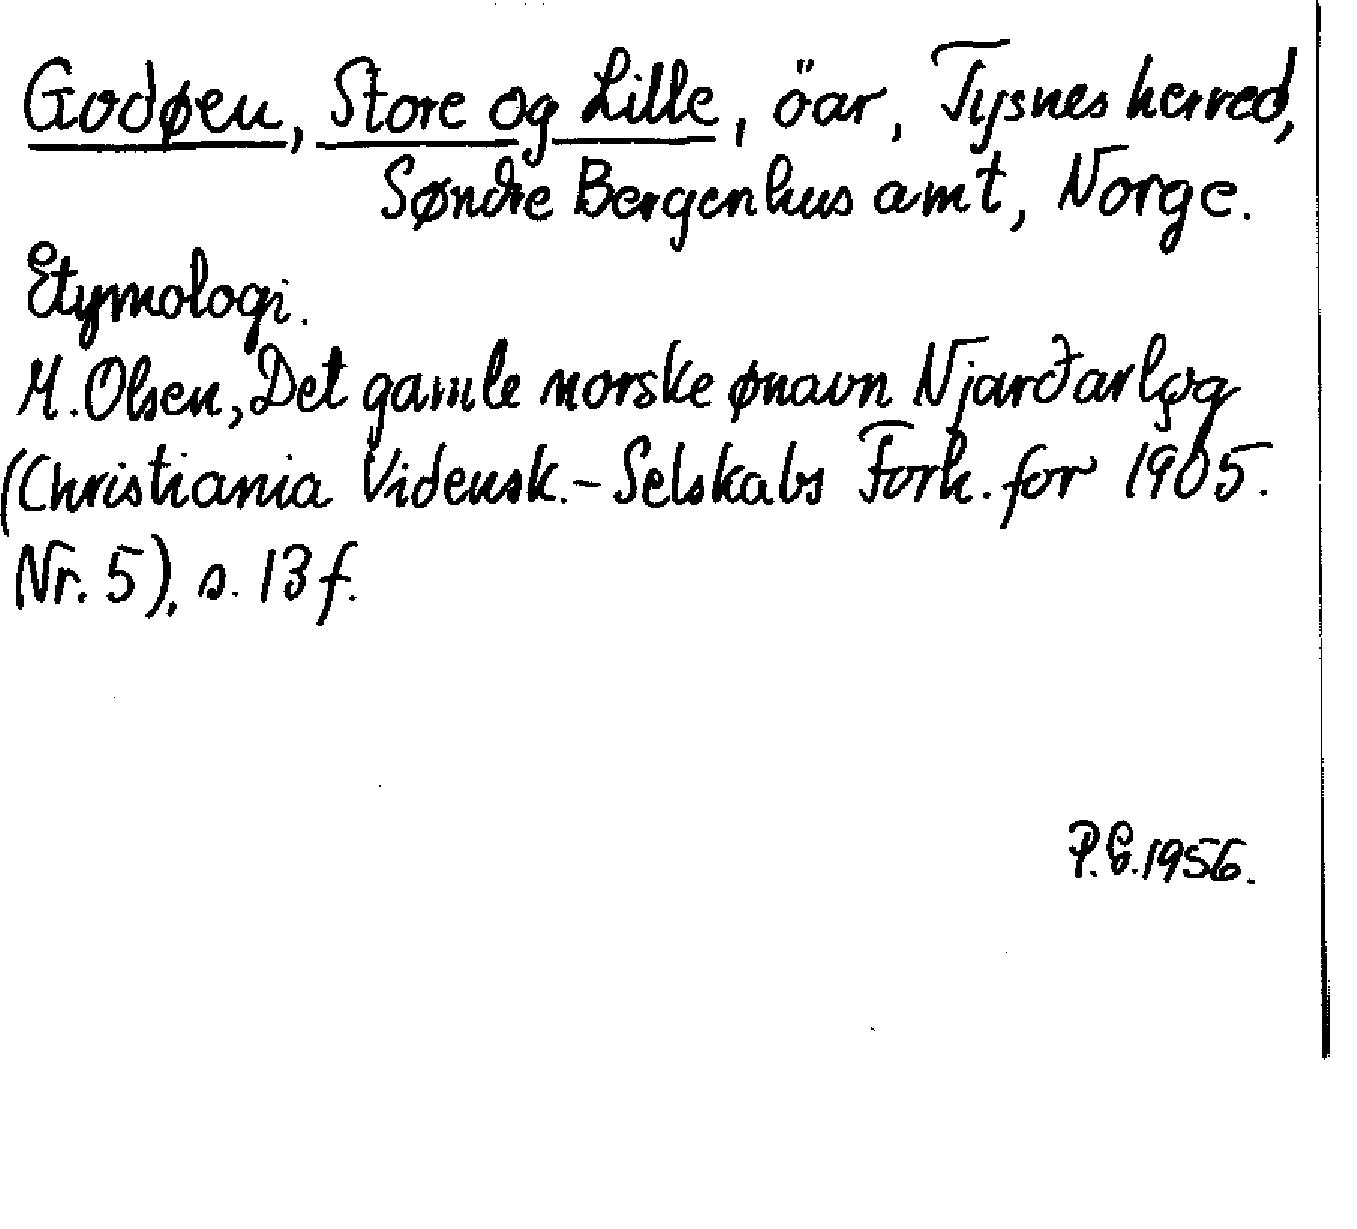 Godøen, Store og Lille, öar, Tysnes herred,
Søndre Bergenhus amt, Norge.
Etymologi.
M. Olsen, Det gamle norske ønavn Njarðarlǫg
(Christiania Vidensk.-Selskabs Forh. for 1905.
Nr. 5), s. 13 f.
P.G. 1956.